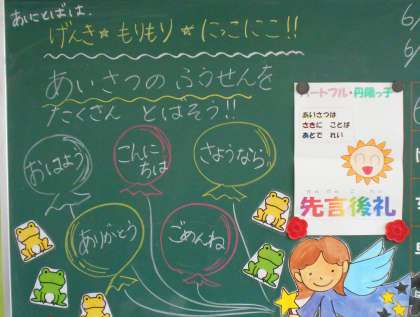 あいことばは、
げんき☆もりもり☆にっこにこ!!
あいさつの ふうせんを
たくさん とばそう!!
おはよう
こんにちは
さようなら
ありがとう
ごめんね
ハートフル・丹陽っ子
あいさつは
さきに ことば
あとで れい
先言後礼